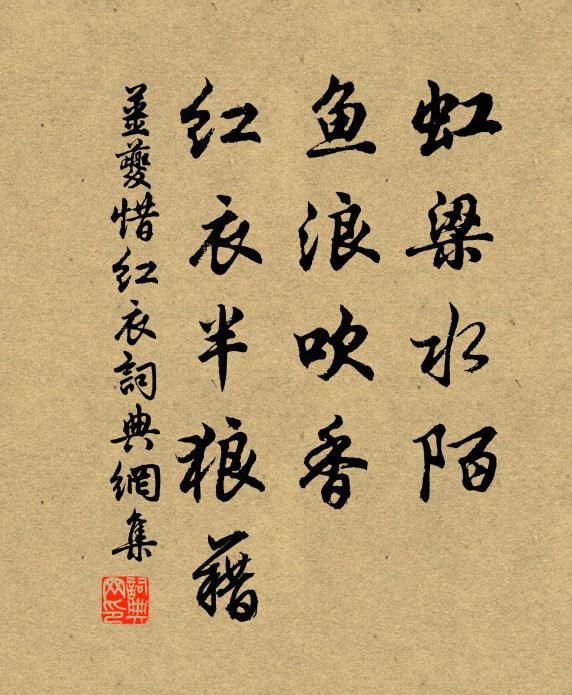 虹梁水陌
魚浪吹香
红衣半狼藉
姜夔惜红衣詞典網集
詞典网印